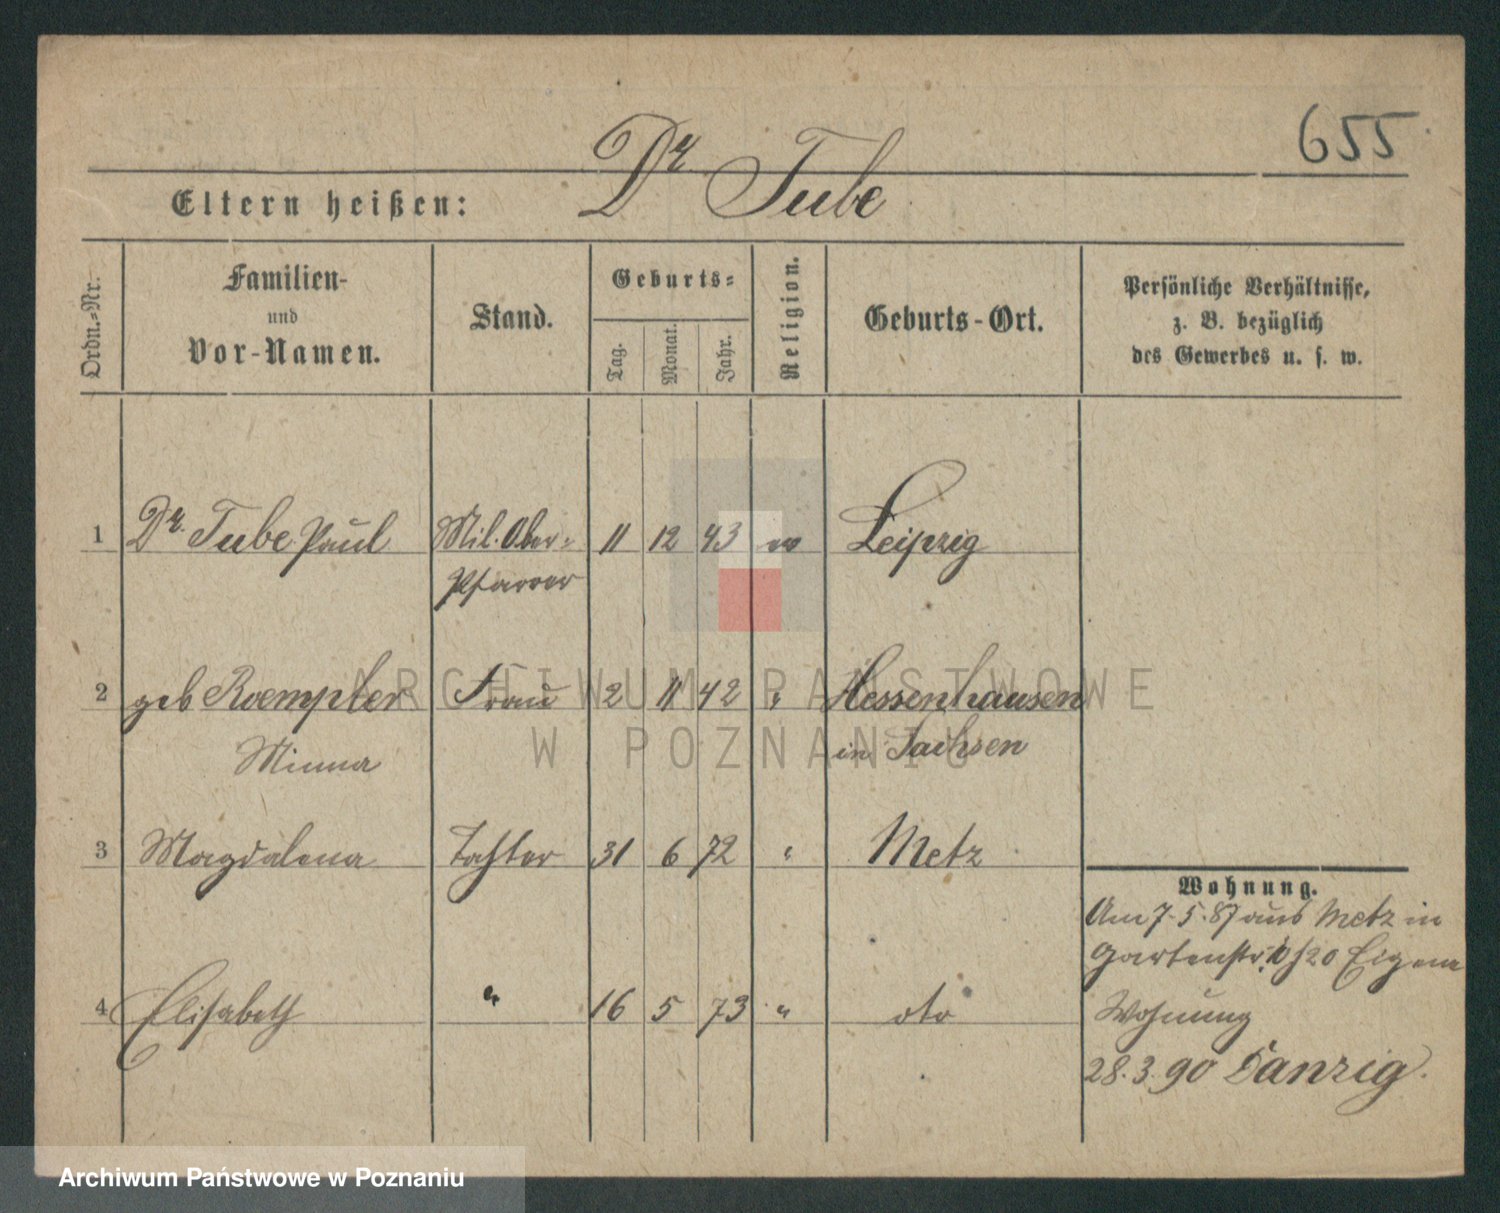 655
Dr. Tube
Eltern heißen:
Ordn.-Nr.
Familien-
und
Vor-Namen.
Stand.
Geburts-
Tag.
Monat.
Jahr.
Religion.
Geburts-Ort.
Persönliche Verhältnisse,
z. B. bezüglich
des Gewerbes u. s. w.
1 Dr. Tube Paul Mil. Ober- 11 12 43 ev Leipzig
Pfarrer
2 geb Roempler Frau 2 11 42 " Hessenhausen
Minna in Sachsen
3 Magdalena Tochter 31 6 72 " Metz
Wohnung.
Am 7.5.87 aus Metz in
Gartenstr. 20 Eigene
4 Elisabeth " 16 5 73 " dto
Wohnung
28.3.90 Danzig.
ARCHIWUM PAŃSTWOWE
W POZNANIU
Archiwum Państwowe w Poznaniu